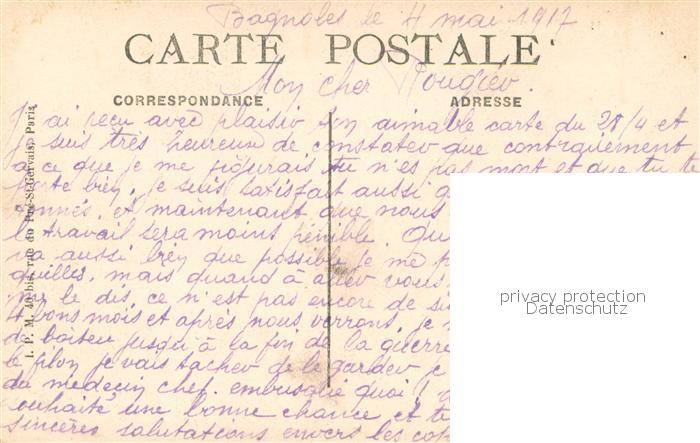 Bagnoles le 4 mai 1917
CARTE POSTALE
Mon cher Rougier.
CORRESPONDANCE ADRESSE
J'ai reçu avec plaisir ton aimable carte du 28/4 et
je suis très heureux de constater que contrairement
à ce que je me figurais tu n'es pas mort et que tu te
porte bien, je suis satisfait aussi
et maintenant que nous
le travail sera moins pénible.
va aussi bien que possible je me
quilles, mais quand à aller vous
me le dis, ce n'est pas encore de
4 bons mois et après nous verrons, je
de boiteu jusqu'à la fin de la guerre
le filon je vais tacher de le garder
du médecin chef. embusqué quoi!
souhaite une bonne chance et te
sincères salutations envers les
I. P. M. 40 bis, rue du Pré-St-Gervais, Paris
privacy protection
Datenschutz